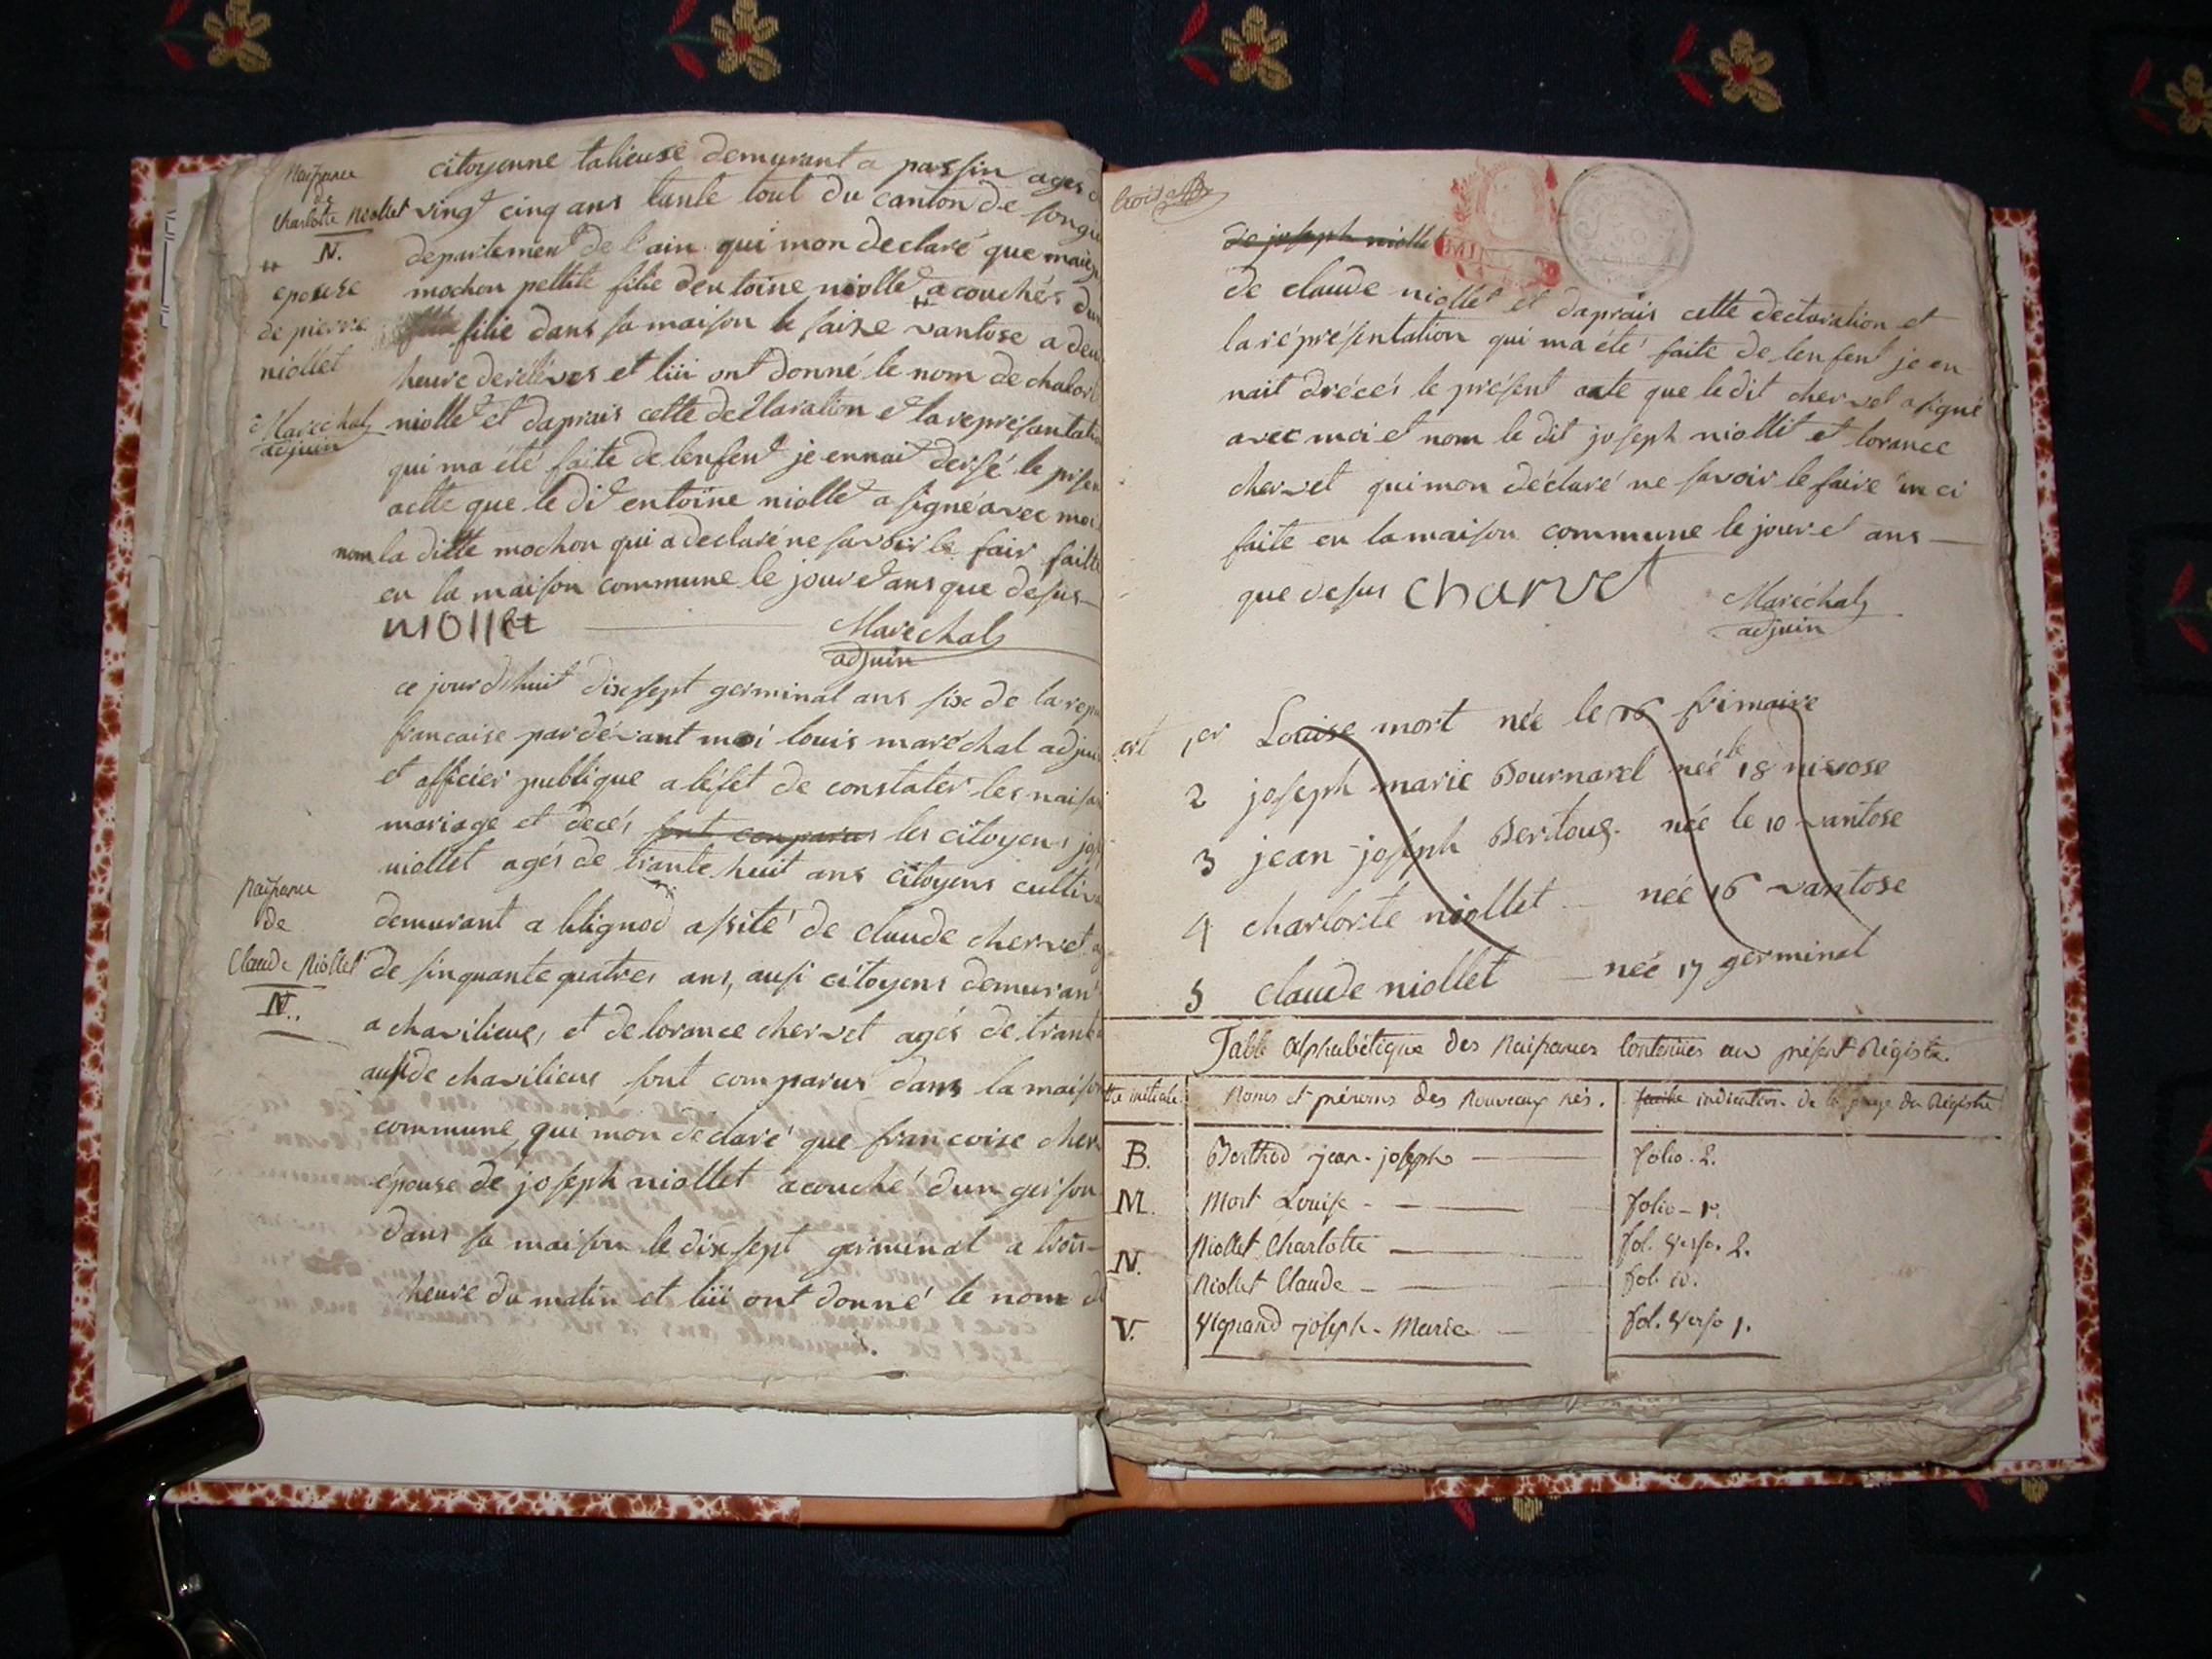 Naissance
de
Charlotte Niollet
N.
epouse
de pierre
niollet
Marechal
adjuin
citoyenne talieuse demurant a passin ages
vingt cinq ans tante tout du canton de songieu
departement de l'ain qui mon declaré que
mochon pettite filie dentoine niollet acouchés dun
filie dans sa maison le saize vantose a deu
heure et liü ont donné le nom de
niollet et daprais cette declaration et la represantati
qui ma été faite de lenfent je ennait dersé le
actte que le dit entoine niollet a signé avec moi
nom la ditte mochon qui a declaré ne savoir le fair faitte
en la maison commune le jour et ans que desus
niollet
Marechal
adjuin
ce jourdhuit dixsept germinal ans six de la rep
francaise pardévant moi louis maréchal adju
et afficier publique a léfet de constater les naisa
mariage et decés sont conparus les citoyens jos
niollet agés de trante huit ans citoyens cultiv
Naissance
de
Claude Niollet
N.
demurant a blignod assité de claude chervet
de sinquante quatres ans, ausi citoyens demuran
a chavilieux, et de lorance chervet agés de trante
ausi de chavilieus sont comparus dans la maison
commune, qui mon declaré que francoise cher
épouse de joseph niollet acouché dun gerson
dans sa maison le dixsept germinal a trois
heure du matin et liü ont donné le nom d
trois
de joseph niollet
de claude niollet et daprais cette declaration et
la réprésentation qui ma été faite de lenfent je en
nait drécés le présent acte que le dit chervet a signé
avec moi et nom le dit joseph niollet et lorance
chervet qui mon déclaré ne savoir le faire
faite en la maison commune le jour et ans
que desus charvet
Maréchal
adjuin
art 1er Louise mort née le 26 frimaire
2 joseph marie Bournard née le 18 nivose
3 jean joseph Bertoux née le 10 vantose
4 charlorte niollet née 16 vantose
5 claude niollet née 17 germinal
Table Alphabétique des Naissances Contenües au présent Régistre.
tre initiale. Noms et prénoms des Nouveaux nés. indication de la page du Régistre
B. Berthod jean-joseph folio. 2.
M. Mort Louise folio 1er
N. Niollet Charlotte fol. verso. 2.
Niollet Claude fol. id.
V. joseph-Marie fol. verso 1.